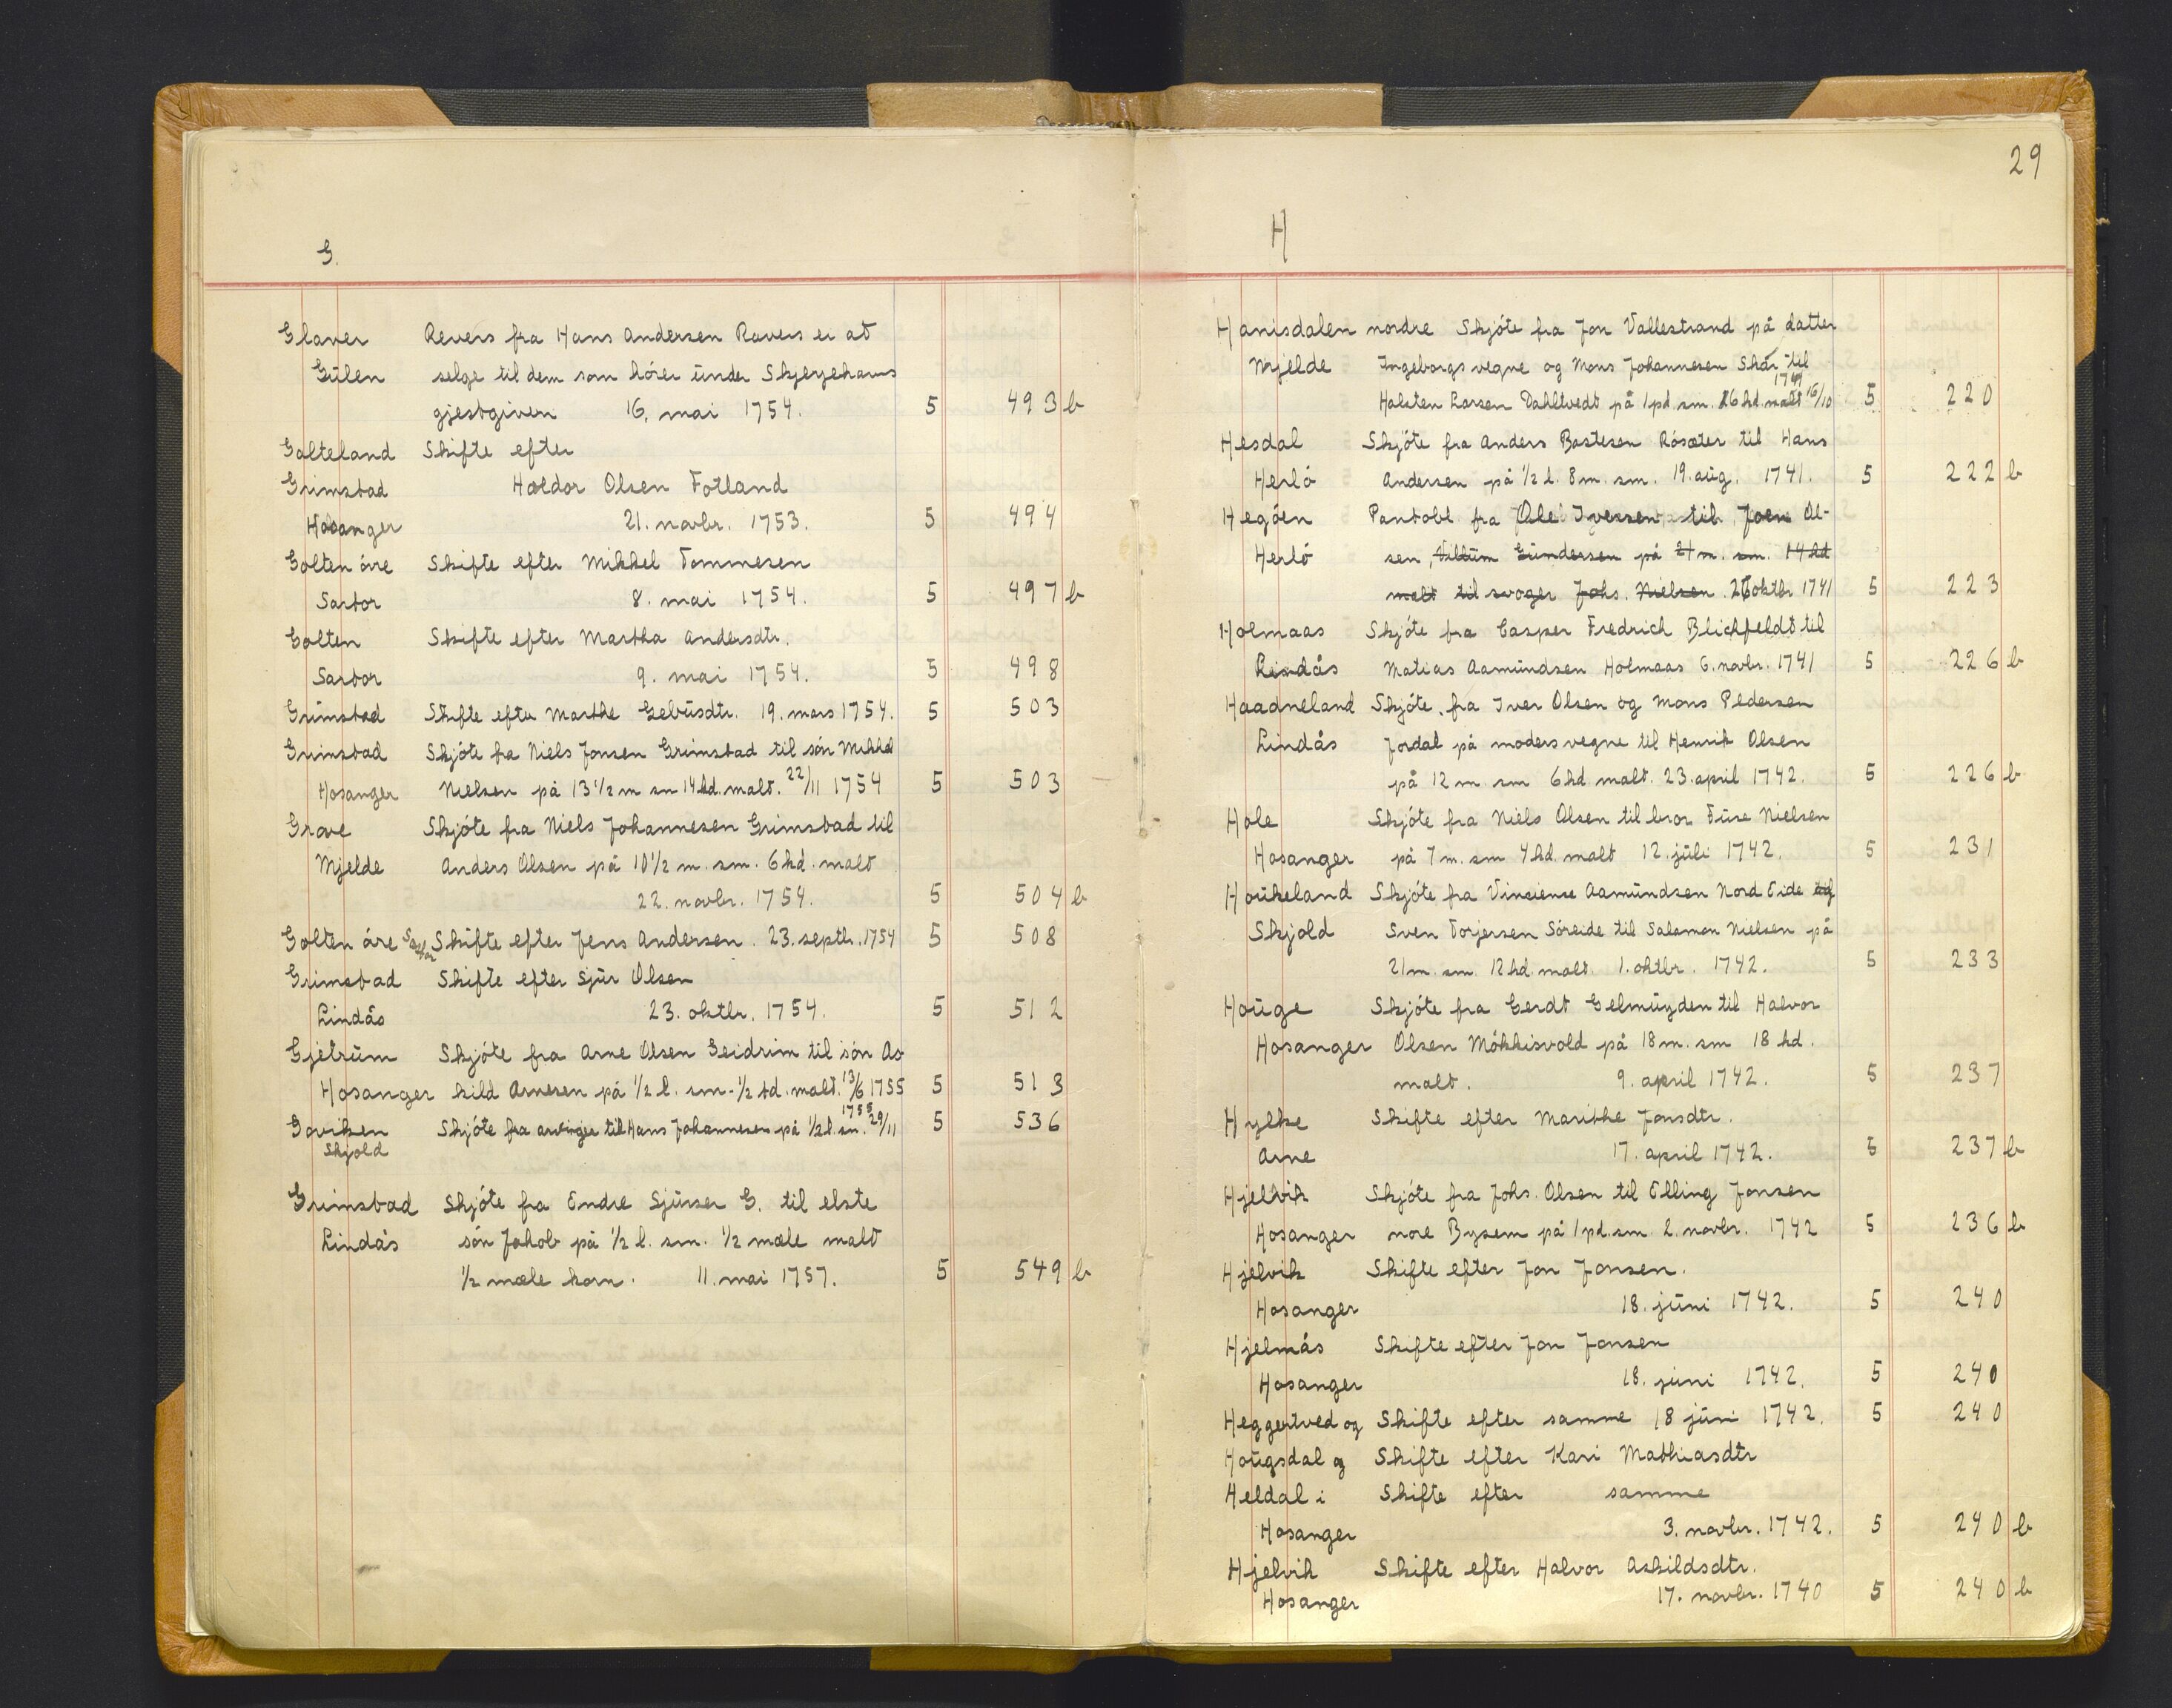 G.
Glaver Revers fra Hans Andersen Ravers er at
Gülen selge til dem som hörer ünder Skjerjehavns
gjestgiveri 16. mai 1754. 5 493 b
Galteland Skifte efter
Grimstad Haldor Olsen Fotland
Hosanger 21. novbr. 1753. 5 494
Golten övre Skifte efter Mikkel Tommesen
Sartor 8. mai 1754. 5 497 b
Golten Skifte efter Martha Andersdtr.
Sartor 9. mai 1754. 5 498
Grimstad Skifte efter Marthe 19. mars 1754. 5 503
Grimstad Skjöte fra Niels Jonsen Grimstad til sön Mikkel
Hosanger Nielsen på 13 1/2 m sm 14 hd. malt. 22/11 1754 5 503
Grove Skjöte fra Niels Johannesen Grimstad til
Mjelde Anders Olsen på 10 1/2 m. sm. 6 hd. malt
22. novbr. 1754. 5 504 b
Golten övre Sartor Skifte efter Jens Andersen. 23. septbr. 1754 5 508
Grimstad Skifte efter Sjür Olsen
Lindås 23. oktbr. 1754. 5 512
Gjetrüm Skjöte fra Arne Olsen Geidrim til sön As-
Hosanger kild Arnesen på 1/2 l. sm - 1/2 td. malt. 13/6 1755 5 513
Goviken Skjöte fra arvinger til Hans Johannesen på 1/2 l. sm. 29/11 1755 5 536
Skjold
Grimstad Skjöte fra Endre Sjürsen G. til elste
Lindås sön Jakob på 1/2 l. sm. 1/2 mæle malt
1/2 mæle korn. 11. mai 1757. 5 549 b
29
H
Hanisdalen nordre Skjöte fra Jon Vallestrand på datter
Mjelde Ingeborgs vegne og Mons Johannesen Skår til
Halsten Larsen Dahltvedt på 1 pd. sm. 16 hd. malt 16/10 1741 5 220
Hesdal Skjöte fra Anders Bastesen Rösæter til Hans
Herlö Andersen på 1/2 l. 8 m. sm. 19. aüg. 1741. 5 222 b
Hegöen Pantobl fra Ole Iversen til Joen Ol-
Herlö sen, Villüm Gündersen på 21 m. sm. 14 hd
malt til svoger Johs. Nielsen. 26 oktbr 1741 5 223
Holmaas Skjöte fra Casper Fredrich Blichfeldt til
Lindås Matias Aamündsen Holmaas 6. novbr. 1741 5 226 b
Haadneland Skjöte fra Iver Olsen og Mons Pedersen
Lindås Jordal på moders vegne til Henrik Olsen
på 12 m. sm 6 hd. malt. 23. april 1742. 5 226 b
Hole Skjöte fra Niels Olsen til bror Füre Nielsen
Hosanger på 7 m. sm 4 hd. malt 12. jüli 1742. 5 231
Hoükeland Skjöte fra Vinsiense Aamündsen Nord Eide og
Skjold Sven Torjersen Söreide til Salamon Nielsen på
21 m. sm. 12 hd. malt. 1. oktbr. 1742. 5 233
Hoüge Skjöte fra Gerdt Gelmüyden til Halvor
Hosanger Olsen Mökkisvold på 18 m. sm 18 hd.
malt. 9. april 1742. 5 237
Hylke Skifte efter Marithe Jonsdtr.
Arne 17. april 1742. 5 237 b
Hjelvik Skjöte fra Johs. Olsen til Elling Jonsen
Hosanger nore Bysem på 1 pd. sm. 2. novbr. 1742 5 236 b
Hjelvik Skifte efter Jon Jonsen.
Hosanger 18. jüni 1742. 5 240
Hjelmås Skifte efter Jon Jonsen
Hosanger 18. jüni 1742. 5 240
Heggertved og Skifte efter samme 18 jüni 1742. 5 240
Hoügsdal og Skifte efter Kari Mathiasdtr
Heldal i Skifte efter samme
Hosanger 3. novbr. 1742. 5 240 b
Hjelvik Skifte efter Halvor Askildsdtr.
Hosanger 17. novbr. 1740 5 240 b